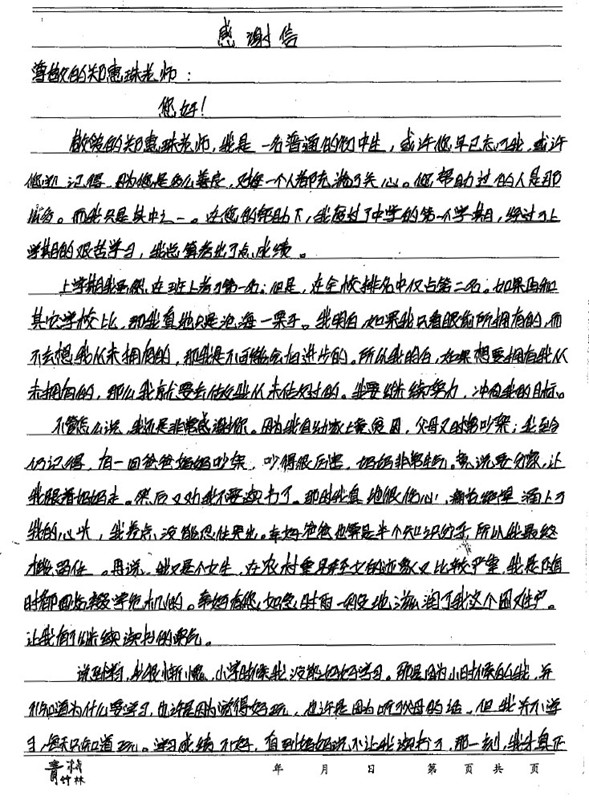 感谢信
尊敬的郑惠珠老师：
您好！
敬爱的郑惠珠老师，我是一名普通的初中生，或许您早已忘记我，或许
您还记得，因为您是那么善良，对每一个人都充满了关心。您帮助过的人是那
么多。而我只是其中之一。在您的帮助下，我度过了中学的第一个学期，经过了上
学期的艰苦学习，我总算考出了点成绩。
上学期我虽然在班上考了第一名；但是，在全校排名中仅占第二名。如果再和
其它学校比，那我真的只是沧海一粟了。我明白，如果我只看眼前所拥有的，而
不去想我从未拥有的，那我是不可能会有进步的。所以我明白，如果想要拥有我从
未拥有的，那么我就要去做我从未做过的。我要继续努力，冲向我的目标。
不管怎么说，我还是非常感谢您。因为我自幼家上贫困，父母又时常吵架；我至今
仍记得，有一回爸爸妈妈吵架，吵得很厉害，妈妈非常生气。竟说要分家，让
我跟着妈妈走。然后又对我不要读书了。那时我真的很伤心，绝望涌上了
我的心头，我差点没能忍住哭出。幸好爸爸也算是半个知识分子，所以我最终
才留住。再说，我又是个女生，在农村重男轻女的现象又比较严重，我是随
时都面临辍学危机的。幸好有您，如及时雨一般地滋润了我这个困难户。
让我有了继续读书的勇气。
说到学习，我很惭愧，小学时候我没能好好学习。那是因为小时候的我，并
不知道为什么要学习，也许是因为觉得好玩，也许是因为听父母的话，但我并不学
习，每天只知道玩。学习成绩不好，直到妈妈说不让我读书了，那一刻，我才真正
青竹林
年 月 日 第 页 共 页